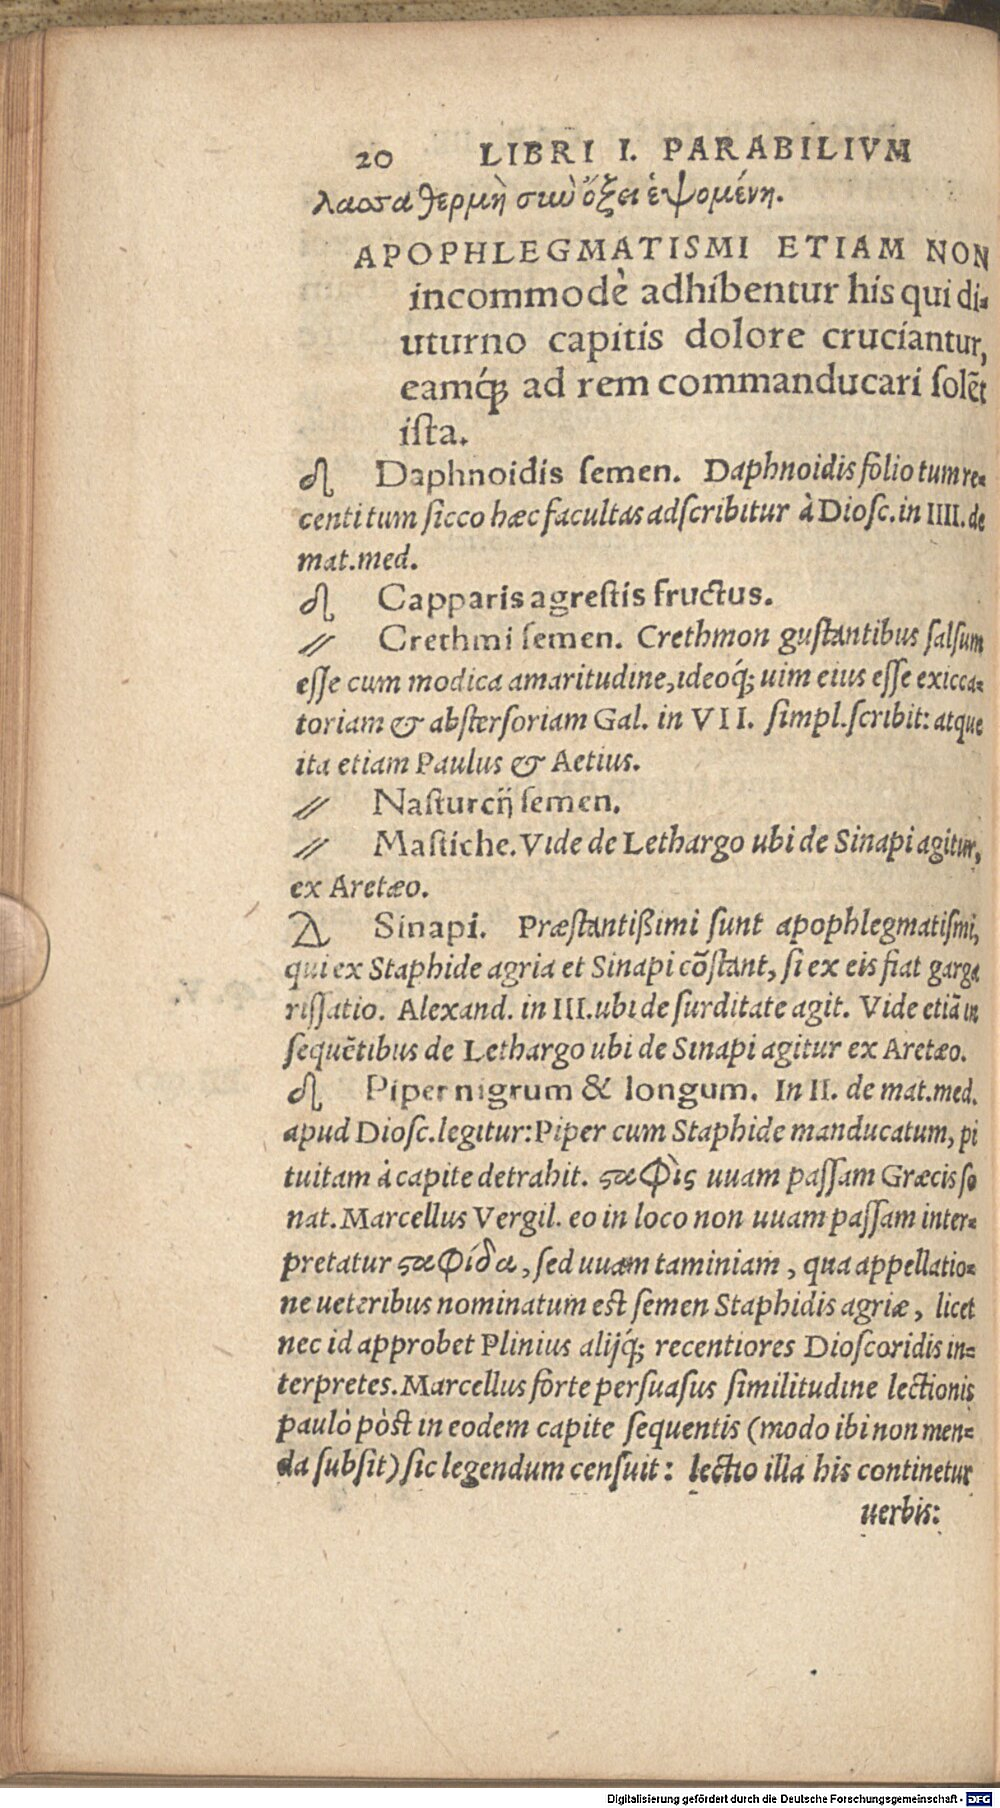 20 LIBRI I. PARABILIVM
λασσα θερμὴ σὺν ὄξει ἑψομένη.
APOPHLEGMATISMI ETIAM NON
incommodè adhibentur his qui di-
uturno capitis dolore cruciantur,
eamq́; ad rem commanducari ſolẽt
iſta.
Daphnoidis ſemen. Daphnoidis folio tum re-
centi tum ſicco hæc facultas adſcribitur à Dioſc. in IIII. de
mat.med.
Capparis agreſtis fructus.
Crethmi ſemen. Crethmon guſtantibus ſalſum
eſſe cum modica amaritudine, ideoq́; uim eius eſſe exicca-
toriam & abſterſoriam Gal. in VII. ſimpl.ſcribit: atque
ita etiam Paulus & Aetius.
Naſturcij ſemen.
Maſtiche. Vide de Lethargo ubi de Sinapi agitur,
ex Aretæo.
Sinapi. Præſtantißimi ſunt apophlegmatiſmi,
qui ex Staphide agria et Sinapi cõſtant, ſi ex eis fiat garga
riſſatio. Alexand. in III. ubi de ſurditate agit. Vide etiã in
ſequẽtibus de Lethargo ubi de Sinapi agitur ex Aretæo.
Piper nigrum & longum. In II. de mat.med.
apud Dioſc.legitur: Piper cum Staphide manducatum, pi
tuitam à capite detrahit. ϛαφὶς uuam paſſam Græcis ſo
nat. Marcellus Vergil. eo in loco non uuam paſſam inter-
pretatur ϛαφίδα, ſed uuam taminiam, qua appellatio-
ne ueteribus nominatum eſt ſemen Staphidis agriæ, licet
nec id approbet Plinius alijq́; recentiores Dioſcoridis in-
terpretes. Marcellus forte perſuaſus ſimilitudine lectionis
paulò pòſt in eodem capite ſequentis (modo ibi non men-
da ſubſit) ſic legendum cenſuit: lectio illa his continetur
uerbis:
Digitalisierung gefördert durch die Deutsche Forschungsgemeinschaft - DFG